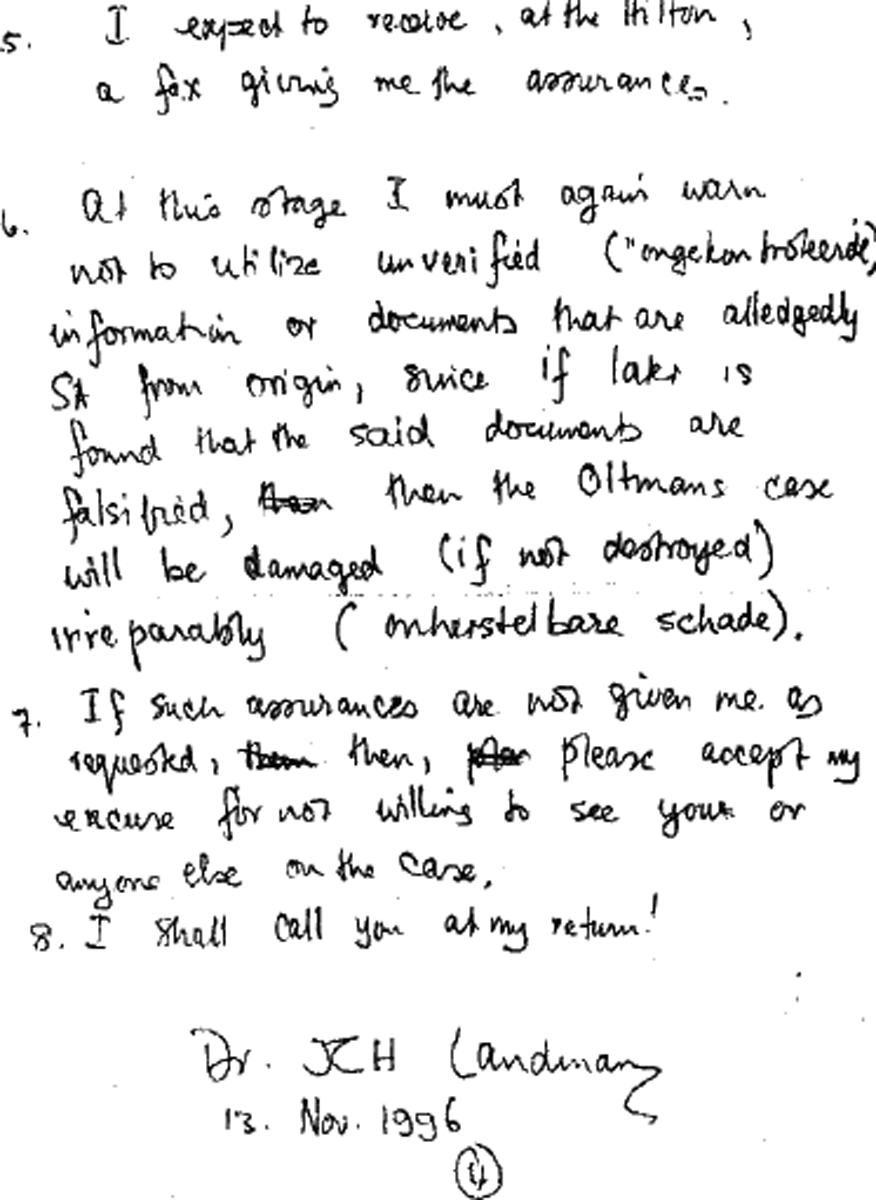 5. I expect to receive, at the Hilton,
a fax giving me the assurances.
6. At this stage I must again warn
not to utilize unverified ("ongekontroleerde")
information or documents that are alledgedly
SA from origin, since if later is
found that the said documents are
falsified, then then the Oltmans case
will be damaged (if not destroyed)
irreparably (onherstelbare schade).
7. If such assurances are not given me as
requested, then then, please accept my
excuse for not willing to see your or
anyone else on the case.
8. I shall call you at my return!
Dr. JCH Landman
13. Nov. 1996
4